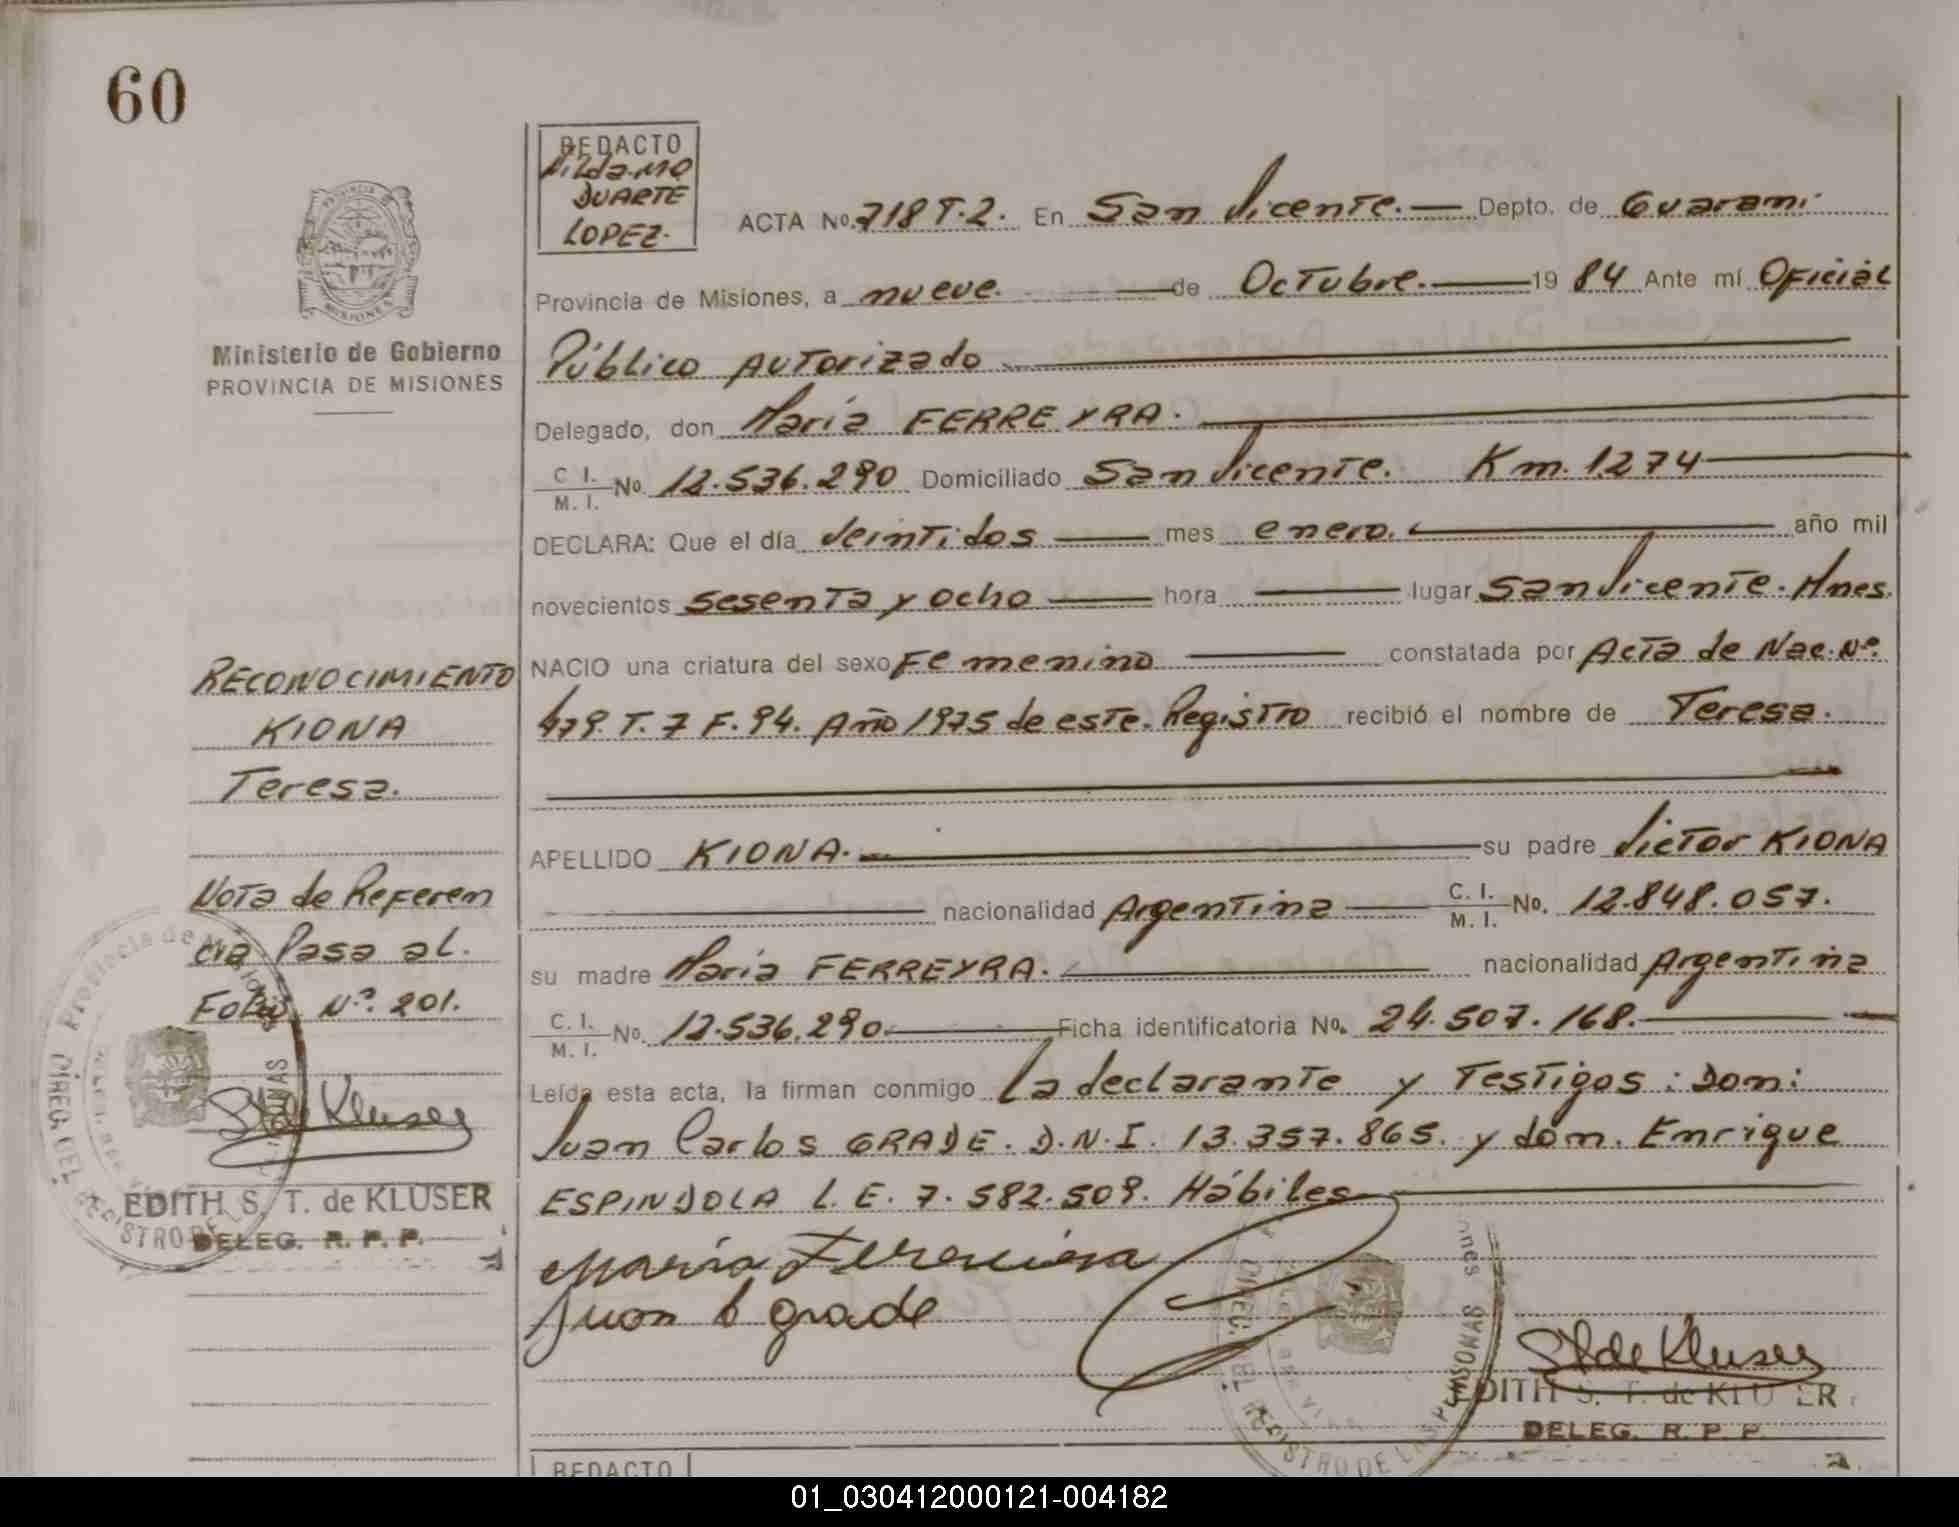 60
REDACTO
DUARTE
LOPEZ.
ACTA No. 718 T.2. En San Vicente. Depto. de Guaraní
Provincia de Misiones, a nueve. de Octubre. 19 84 Ante mí Oficial
Ministerio de Gobierno
PROVINCIA DE MISIONES
Público Autorizado
Delegado, don María FERREYRA.
C. I. / M. I. No. 12.536.290 Domiciliado San Vicente. Km. 1274
DECLARA: Que el día Veintidos mes enero. año mil
novecientos sesenta y ocho hora lugar San Vicente. Mnes.
NACIO una criatura del sexo Femenino constatada por Acta de Nac. Nº.
479. T. 7 F. 94. Año 1975 de este. Registro recibió el nombre de Teresa.
APELLIDO KIONA. su padre Victor KIONA
nacionalidad Argentina C. I. / M. I. No. 12.848.057.
su madre María FERREYRA. nacionalidad Argentina
C. I. / M. I. No. 12.536.290. Ficha identificatoria No. 24.507.168.
Leída esta acta, la firman conmigo La declarante y Testigos: Don:
Juan Carlos GRADE. D.N.I. 13.357.865. y don. Enrique
ESPINDOLA L.E. 7.582.509. Hábiles
María Ferreira
Juan C grade
ST de Kluser
EDITH S. T. de KLUSER
DELEG. R. P. P.
RECONOCIMIENTO
KIONA
Teresa.
Nota de Referen
cia Pasa al.
Folio Nº. 201.
Provincia de Misiones
DIREC. DEL REGISTRO DE LAS PERSONAS
ST de Kluser
EDITH S. T. de KLUSER
DELEG. R. P. P.
DIREC. DEL REGISTRO DE LAS PERSONAS
REDACTO
01_030412000121-004182